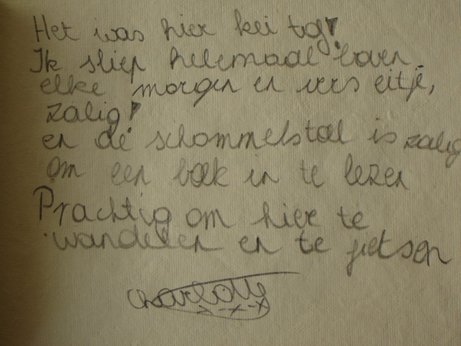 Het was hier kei tof!
Ik sliep helemaal boven
elke morgen en vers eitje,
zalig!
en de schommelstoel is zalig
om een boek in te lezen
Prachtig om hier te
wandelen en te fietsen
Charlotte
x x x